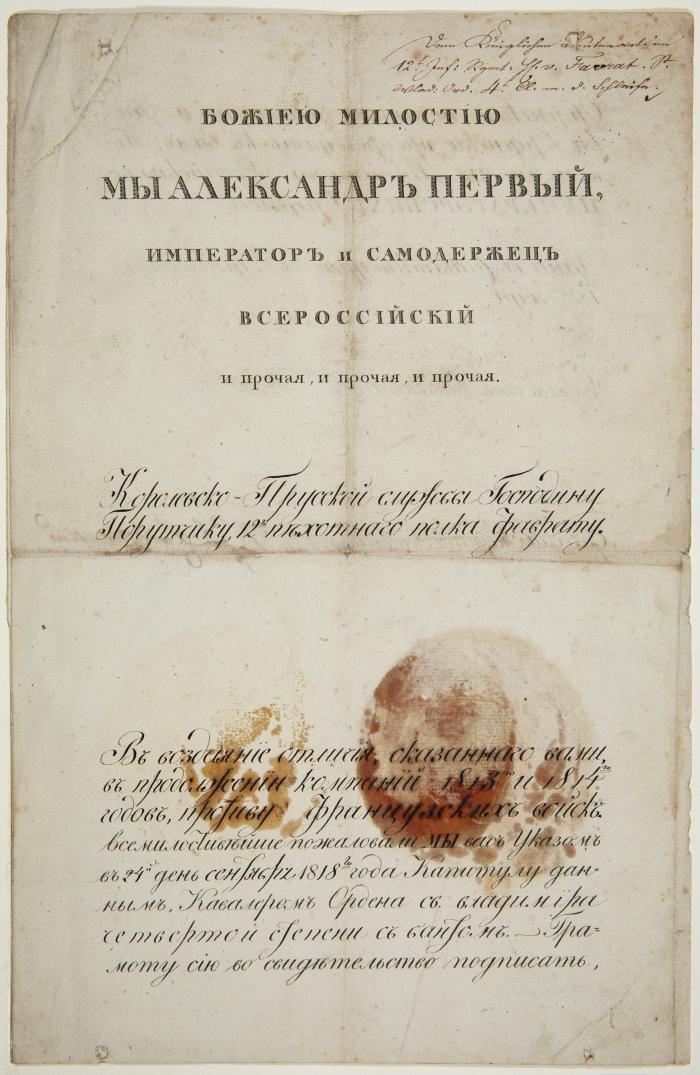 Dem Königlichen Lieutenant im
12t. Inf: Regmt. H. v. Favrat. St.
Wlad. Ord. 4t. Cl. m. d. Schleife.
БОЖІЕЮ МИЛОСТІЮ
МЫ АЛЕКСАНДРЪ ПЕРВЫЙ,
ИМПЕРАТОРЪ и САМОДЕРЖЕЦЪ
ВСЕРОССІЙСКІЙ
и прочая, и прочая, и прочая.
Королевско-Прусской службы Господину
Порутчику, 12го пѣхотнаго полка Фаврату.
Въ воздаяніе отличія, оказаннаго вами,
въ продолженіи компаній 1813го и 1814го
годовъ, противу Французскихъ войскъ.
всемилостивѣйше пожаловали МЫ васъ Указомъ
въ 24й день сентября 1818го года Капитулу дан-
нымъ, Кавалеромъ Ордена св. владиміра
четвертой степени съ бантомъ. — Гра-
моту сію во свидѣтельство подписать,